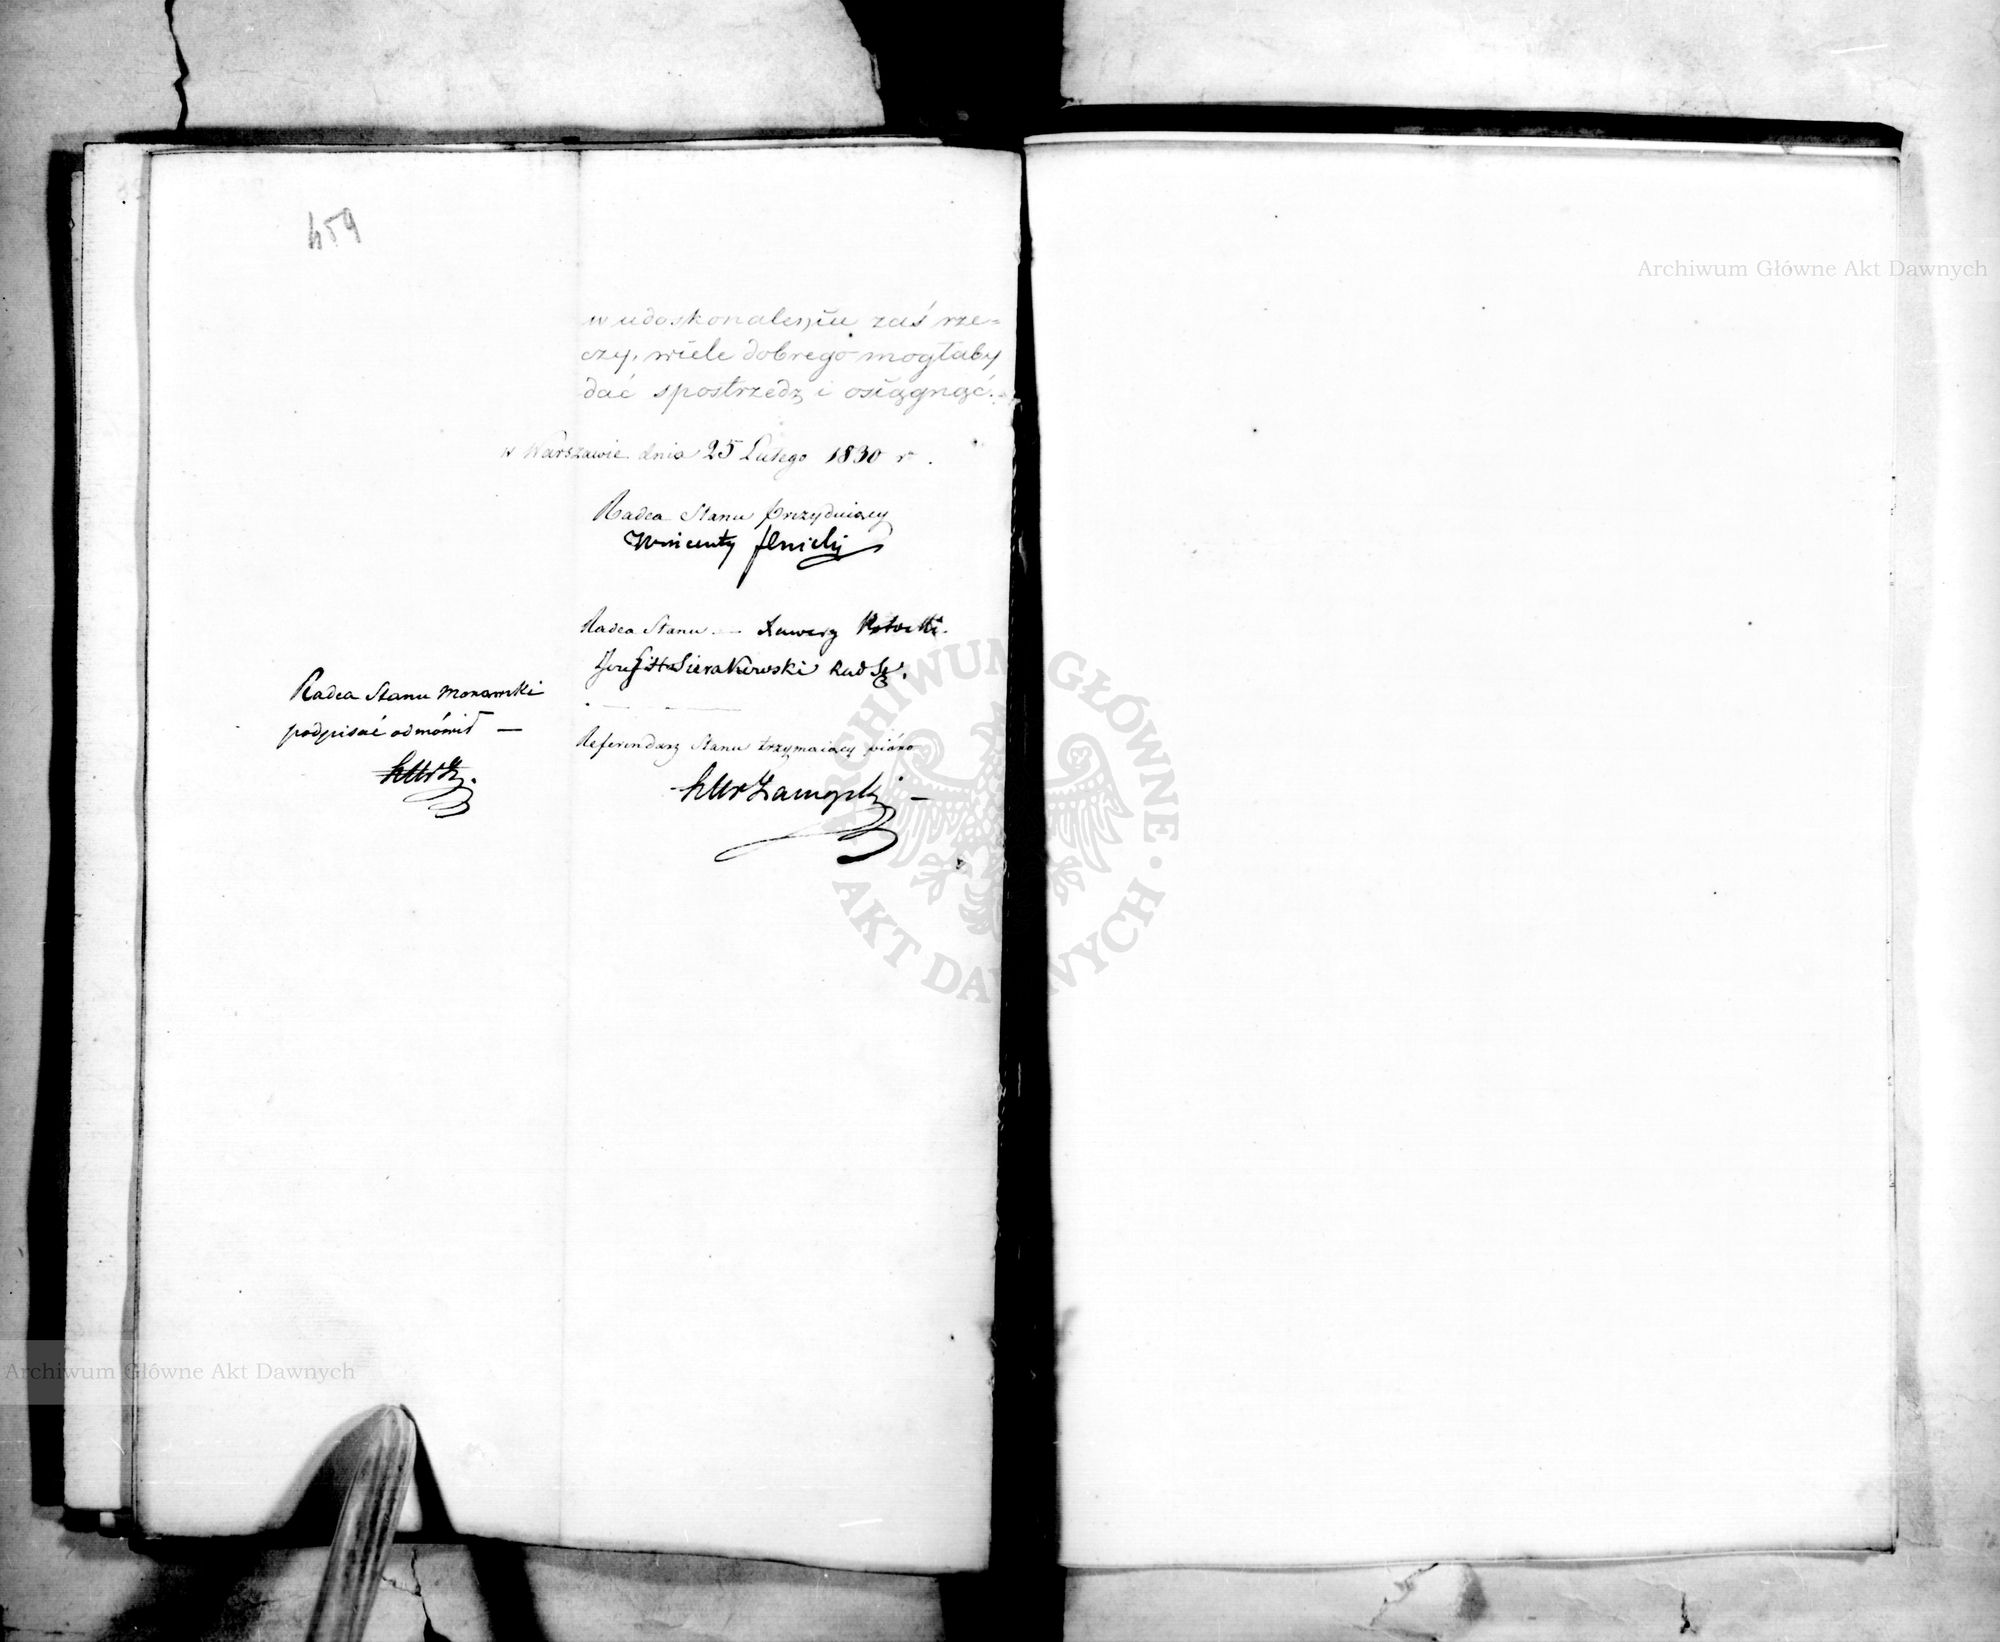 459
w udoskonaleniu zaś rze=
czy, wiele dobrego mogłaby
dać spostrzedz i osiągnąć.
w Warszawie dnia 25 Lutego 1830 r.
Radca Stanu prezyduiący
Wincenty
Radca Stanu — Xawery Potocki.
Józef Sierakowski Rad St.
Radca Stanu Morawski
podpisać odmówił —
Referendarz Stanu trzymaiący pióro
Zamoyski —
Archiwum Główne Akt Dawnych
Archiwum Główne Akt Dawnych
ARCHIWUM GŁÓWNE · AKT DAWNYCH ·